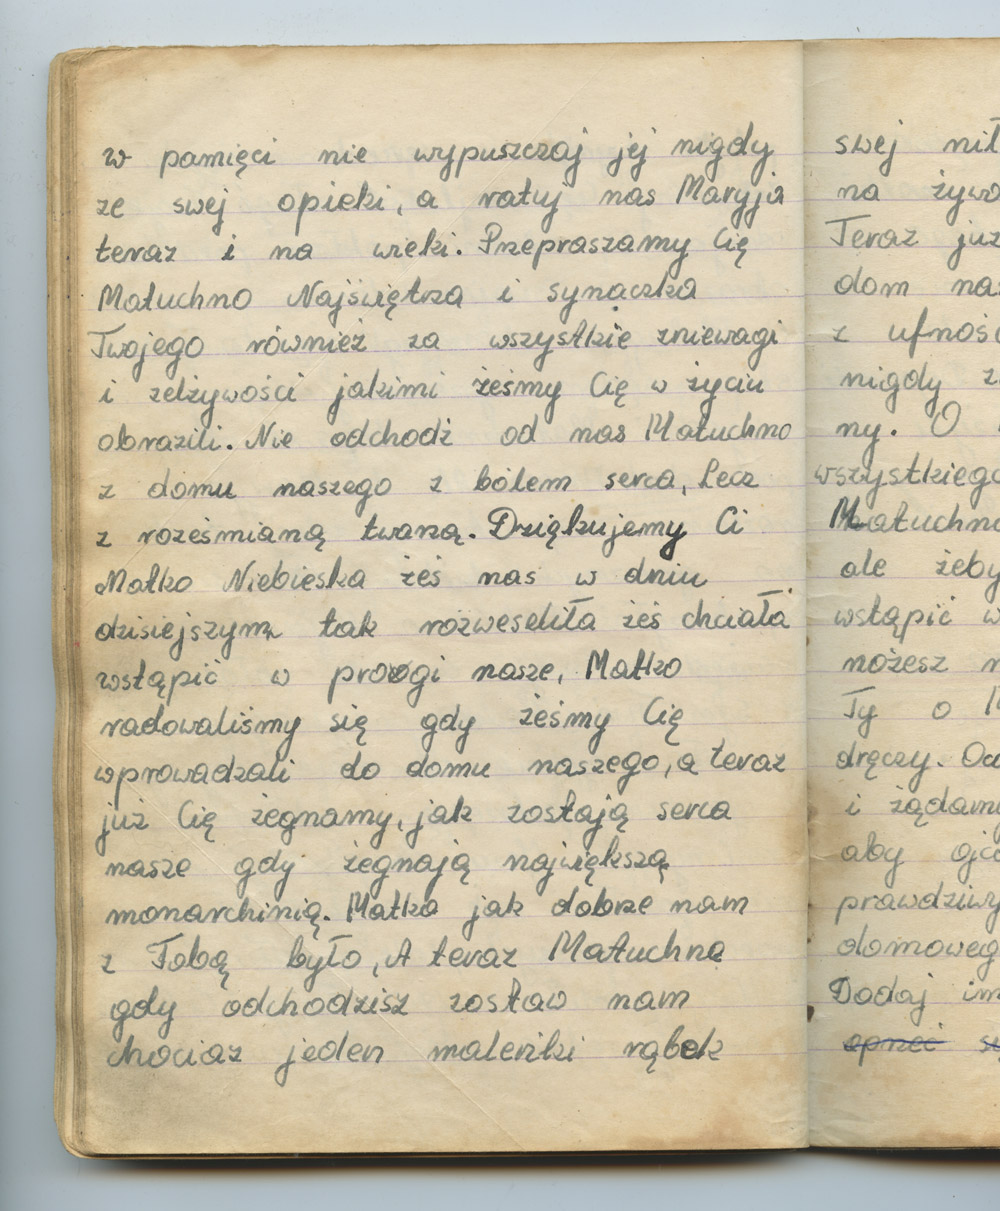 w pamięci nie wypuszczaj jej nigdy
ze swej opieki, a ratuj nas Maryja
teraz i na wieki. Przepraszamy Cię
Matuchno Najświętrza i synaczka
Twojego również za wszystkie zniewagi
i zelżywości jakimi żeśmy Cię w życiu
obrazili. Nie odchodź od nas Matuchno
z domu naszego z bólem serca, Lecz
z roześmianą twarzą. Dziękujemy Ci
Matko Niebieska żeś nas w dniu
dzisiejszym tak rozweseliła żeś chciała
wstąpić w progi nasze, Matko
radowaliśmy się gdy żeśmy Cię
wprowadzali do domu naszego, a teraz
już Cię żegnamy, jak zostają serca
nasze gdy żegnają największą
monarchinią. Matko jak dobrze nam
z Tobą było, A teraz Matuchno
gdy odchodzisz zostaw nam
chociaz jeden maleńki rąbek
swej
na
Teraz już
dom
z
nigdy
ny. O
wszystkiego
Matuchno
ale żeby
wstąpić w
możesz
Ty o
dręczy.
i żądamy
aby
Dodaj